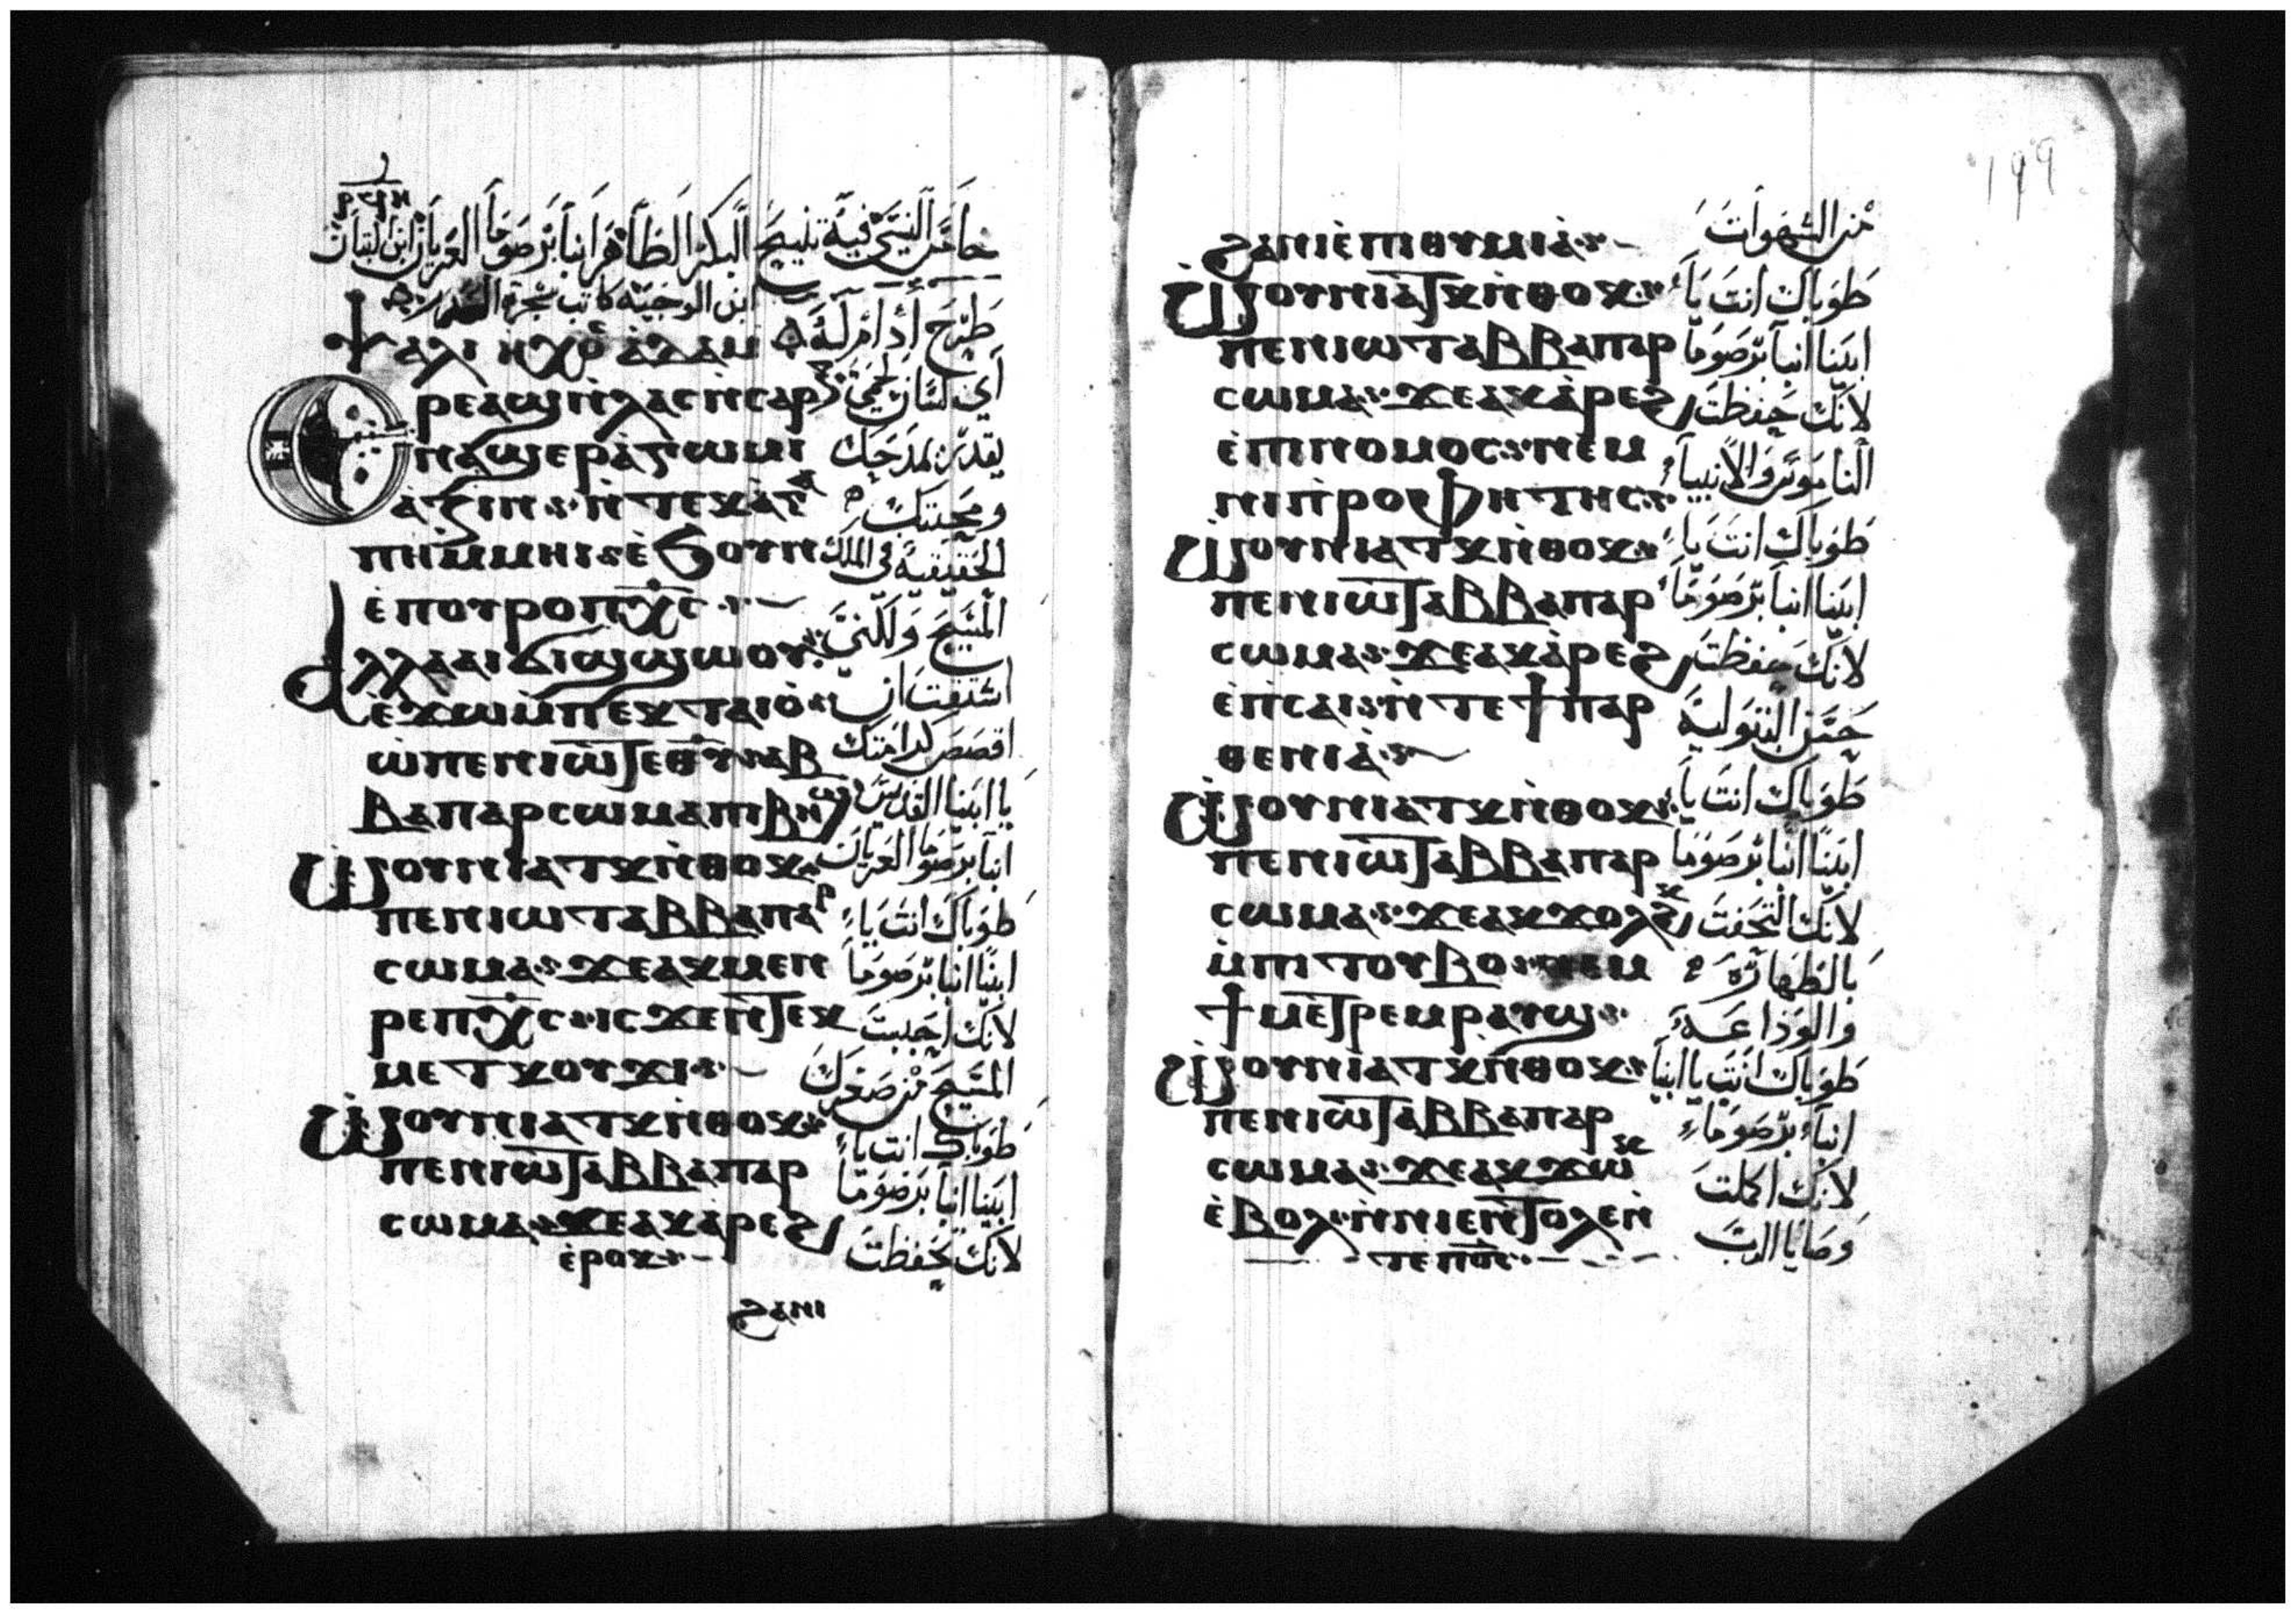 ⲣϥⲏ
خامس النسي فيه تنييح البكر الطاهر انبا برصوما العريان ابن التبان
ابن الوجيه كاتب شجرة الدر
طرح ادام له
ⲯⲁⲗⲓ ⲏⲭⲟⲥ ⲁⲇⲁⲙ
ⲉⲣⲉⲁϣⲛ̀ⲗⲁⲥⲛ̀ⲥⲁⲣⲝ اي لسان لحمي
ⲛⲁϣⲉⲣⲁ̀ⲝⲓⲱⲙⲓ يقدر بمدحك
ⲛ̀ⲧⲉⲕⲁ̀ⲅⲁ ومحبتك
ⲡⲏⲙ̀ⲙⲏⲓ ⲉ̀ϧⲟⲩⲛ الحقيقية في الملك
ⲉ̀ⲡⲟⲩⲣⲟⲡⲭ̅ⲥ̅ المسيح ولكني
ⲁⲗⲗⲁⲁⲓϭⲓϣϣⲱⲟⲩ اشتقت ان
ⲉ̀ϫⲱⲙ̀ⲡⲉⲕⲧⲁⲓⲟ̀ اقصص كرامتك
ⲱ̀ⲡⲉⲛⲓⲱⲧⲉⲑⲟⲩⲁⲃ يا ابينا القديس
ⲃⲁⲡⲁⲣⲥⲱⲙⲁⲡⲓⲃⲏϣ انبا برصوما العريان
ⲱⲟⲩⲛⲓⲁⲧⲕⲛ̀ⲑⲟⲕ
ⲡⲉⲛⲓⲱⲧⲁⲃⲃⲁⲡⲁⲣ طوباك انت يا
ⲥⲱⲙⲁ ϫⲉⲁⲕⲙⲉⲛ ابينا انبا برصوما
ⲣⲉⲡⲭ̅ⲥ̅ ⲓⲥϫⲉⲛⲧⲉⲕ لانك احببت
ⲙⲉⲧⲕⲟⲩϫⲓ المسيح من صغرك
ⲱⲟⲩⲛⲓⲁⲧⲕⲛ̀ⲑⲟⲕ طوباك انت يا
ⲡⲉⲛⲓⲱⲧⲁⲃⲃⲁⲡⲁⲣ ابينا انبا برصوما
ⲥⲱⲙⲁ ϫⲉⲁⲕⲁ̀ⲣⲉϩ لانك تحفظت
ⲉ̀ⲣⲟⲕ
ϩⲁⲛⲓ
199
ϩⲁⲛⲓⲉ̀ⲡⲓⲑⲩⲙⲓⲁ̀ من الشهوات
ⲱⲟⲩⲛⲓⲁⲧⲕⲛ̀ⲑⲟⲕ طوباك انت يا
ⲡⲉⲛⲓⲱⲧⲁⲃⲃⲁⲡⲁⲣ ابينا انبا برصوما
ⲥⲱⲙⲁ ϫⲉⲁⲕⲁ̀ⲣⲉϩ لانك حفظت
ⲉ̀ⲡⲓⲛⲟⲙⲟⲥ ⲛⲉⲙ الناموس والانبياء
ⲛⲓⲡ̀ⲣⲟⲫⲏⲧⲏⲥ
ⲱⲟⲩⲛⲓⲁⲧⲕⲛ̀ⲑⲟⲕ طوباك انت يا
ⲡⲉⲛⲓⲱⲧⲁⲃⲃⲁⲡⲁⲣ ابينا انبا برصوما
ⲥⲱⲙⲁ ϫⲉⲁⲕⲁ̀ⲣⲉϩ لانك حفظت
ⲉ̀ⲡ̀ⲥⲁⲓ ⲛ̀ⲧⲉϯⲡⲁⲣ حسن البتولية
ⲑⲉⲛⲓⲁ̀
ⲱⲟⲩⲛⲓⲁⲧⲕⲛ̀ⲑⲟⲕ طوباك انت يا
ⲡⲉⲛⲓⲱⲧⲁⲃⲃⲁⲡⲁⲣ ابينا انبا برصوما
ⲥⲱⲙⲁ ϫⲉⲁⲕϫⲟⲗϩⲕ لانك التحفت
ⲙ̀ⲡⲓⲧⲟⲩⲃⲟ ⲛⲉⲙ بالطهارة
ϯⲙⲉⲧⲣⲉⲙⲣⲁⲩϣ والوداعة
ⲱⲟⲩⲛⲓⲁⲧⲕⲛ̀ⲑⲟⲕ طوباك انت يا ابينا
ⲡⲉⲛⲓⲱⲧⲁⲃⲃⲁⲡⲁⲣ انبا برصوما
ⲥⲱⲙⲁ ϫⲉⲁⲕϫⲱⲕ لانك اكملت
ⲉ̀ⲃⲟⲗ ⲛ̀ⲛⲓⲉⲛⲧⲟⲗⲏⲛ̀ وصايا الرب
ⲧⲉⲡⲟ̅ⲥ̅